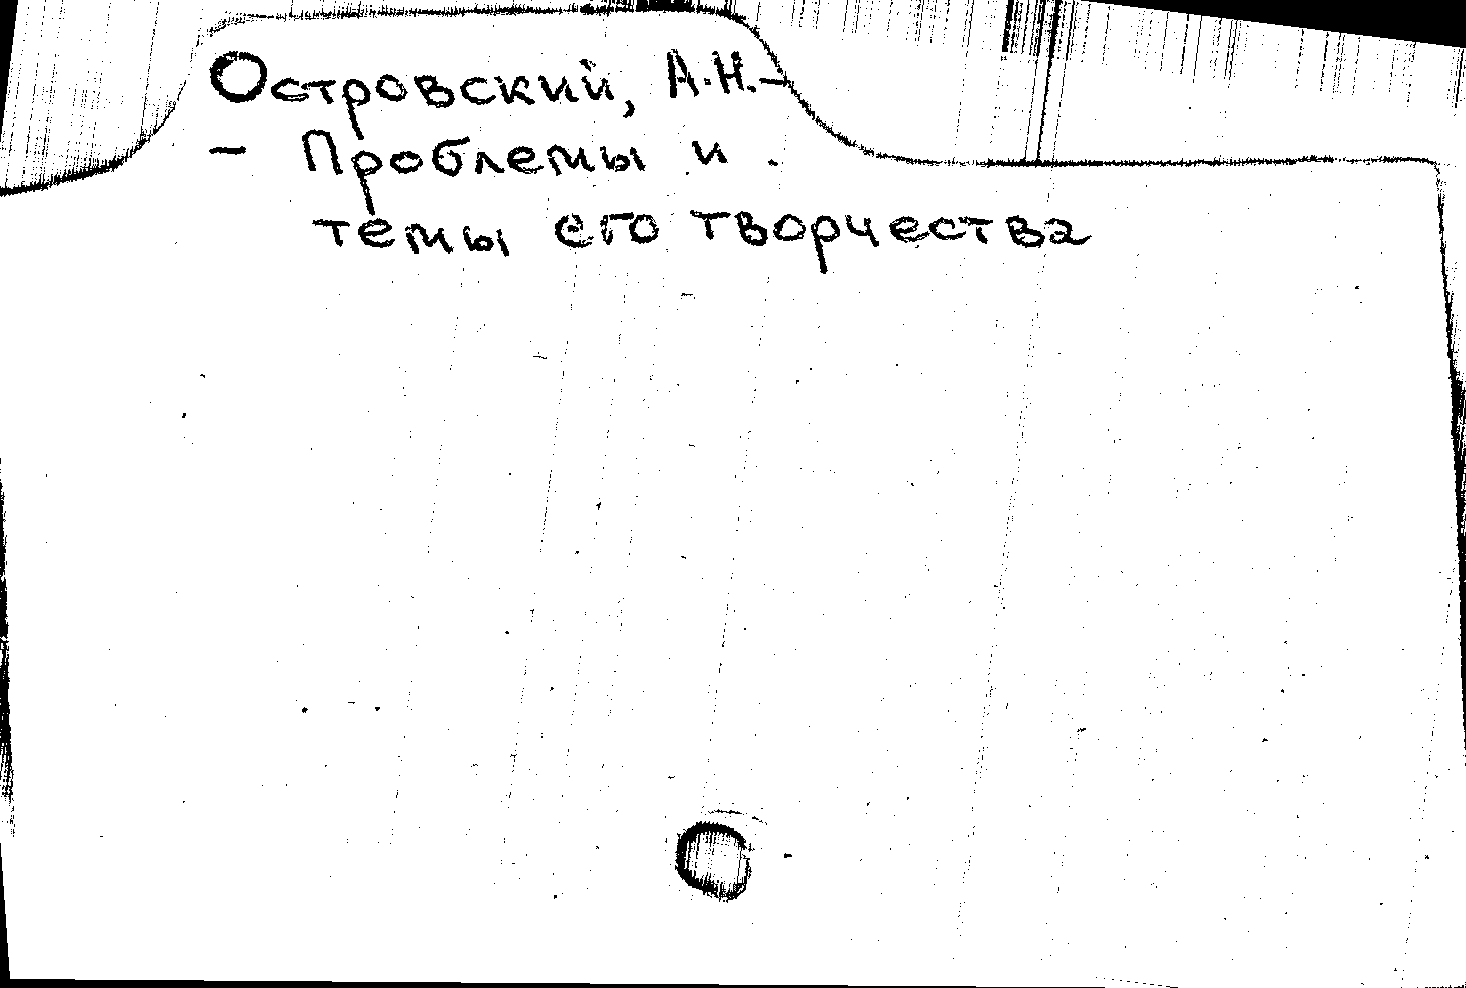 Островский, А.Н.-
- Проблемы и
темы его творчества